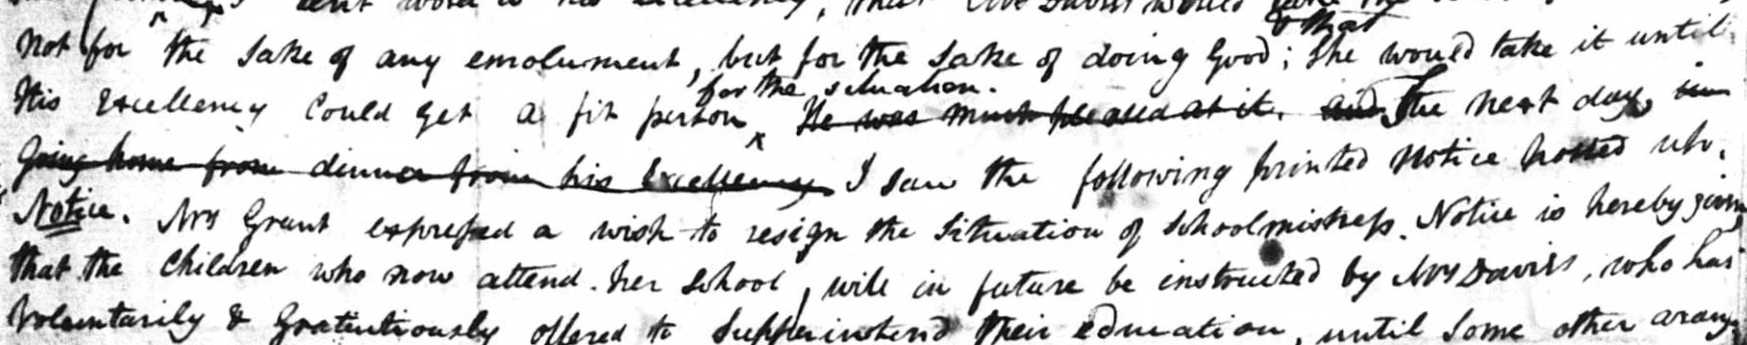 sent word to his Excellency, that Mrs Davis would take the
not for the sake of any emolument, but for the sake of doing Good; & that She would take it until
His Excellency Could get a fit person for the situation. He was much pleased at it. and The next day, in
going home from dinner from his Excellency I saw the following printed Notice posted up.
Notice. Mrs Grant expressed a wish to resign the Situation of Schoolmistress. Notice is hereby given
that the Children who now attend her School, will in future be instructed by Mrs Davis, who has
Voluntarily & Gratuitiously offered to Supperintend their education, until some other arang